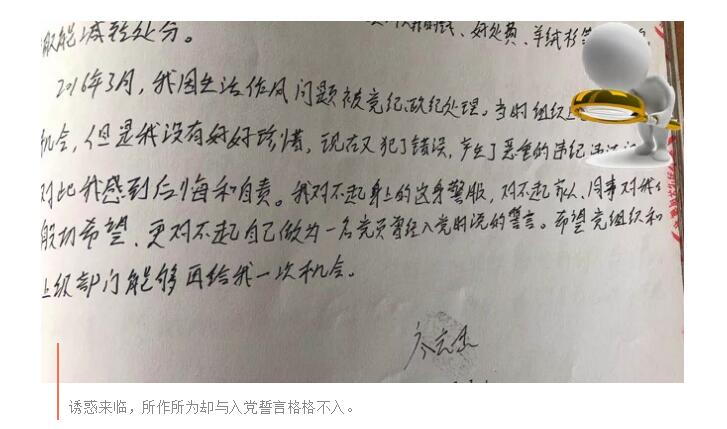 般能减轻处分。
好处费、羊绒衫等
2016年3月，我因生活作风问题被党纪政纪处理。当时组织
机会，但是我没有好好珍惜，现在又犯了错误，产生了恶重的违纪违法
对此我感到后悔和自责。我对不起身上的这身警服，对不起家人、同事对我
殷切希望、更对不起自己做为一名党员曾经入党时说的誓言。希望党组织和
上级部门能够再给我一次机会。
诱惑来临，所作所为却与入党誓言格格不入。